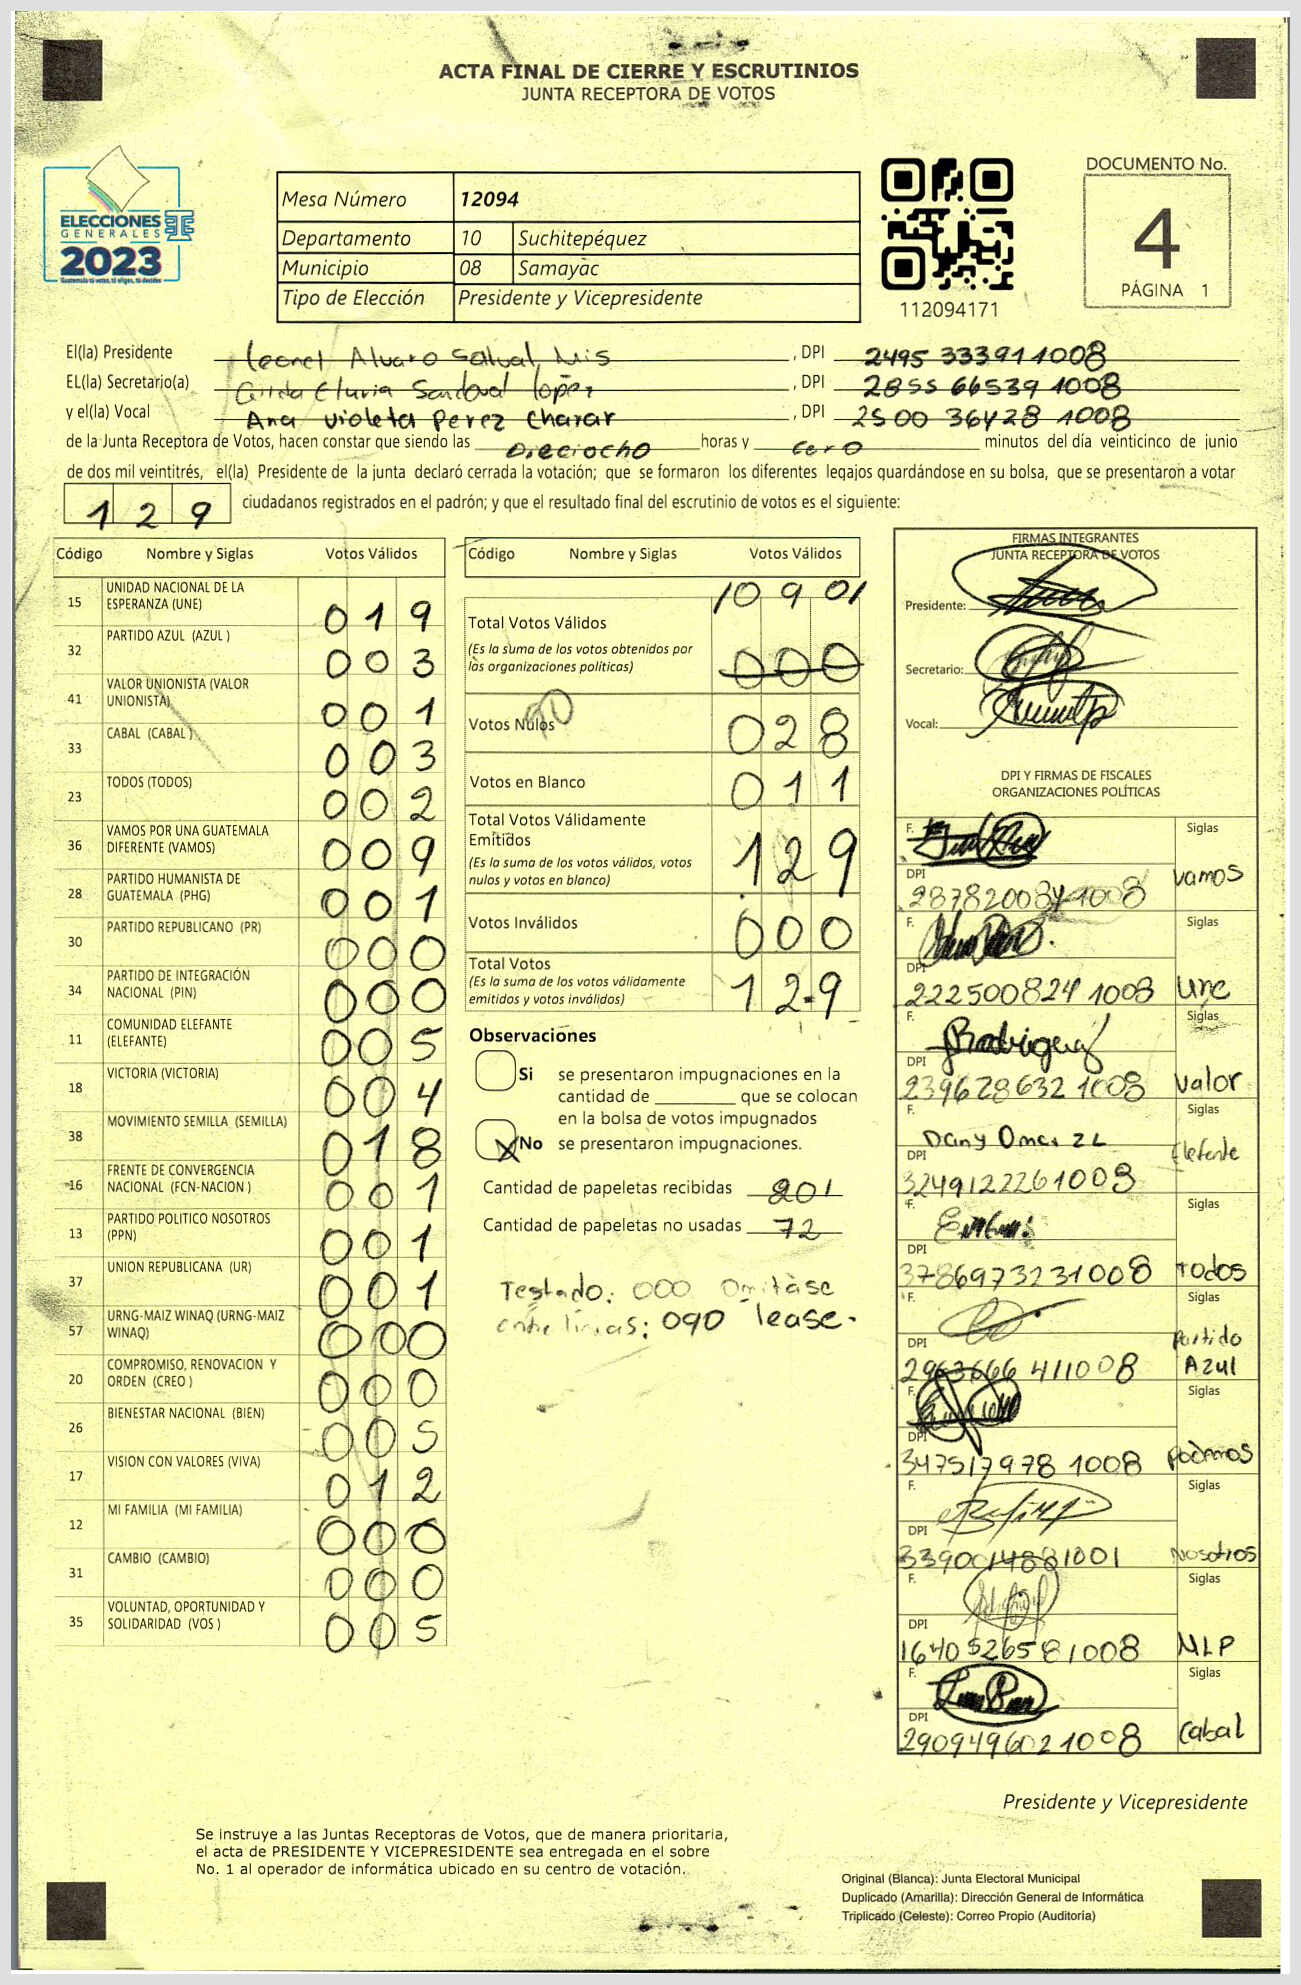 ACTA FINAL DE CIERRE Y ESCRUTINIOS
JUNTA RECEPTORA DE VOTOS
ELECCIONES
GENERALES
2023
Guatemala tú votas, tú eliges, tú decides
Mesa Número 12094
Departamento 10 Suchitepéquez
Municipio 08 Samayac
Tipo de Elección Presidente y Vicepresidente
112094171
DOCUMENTO No.
4
PÁGINA 1
El(la) Presidente Leonel Alvaro Mis , DPI 2495 33391 1008
EL(la) Secretario(a) Sandoval López , DPI 2855 66539 1008
y el(la) Vocal Ana Violeta Perez Charar , DPI 2500 36428 1008
de la Junta Receptora de Votos, hacen constar que siendo las Dieciocho horas y cero minutos del día veinticinco de junio
de dos mil veintitrés, el(la) Presidente de la junta declaró cerrada la votación; que se formaron los diferentes legajos quardándose en su bolsa, que se presentaron a votar
129 ciudadanos registrados en el padrón; y que el resultado final del escrutinio de votos es el siguiente:
Código Nombre y Siglas Votos Válidos
15 UNIDAD NACIONAL DE LA ESPERANZA (UNE) 019
32 PARTIDO AZUL (AZUL ) 003
41 VALOR UNIONISTA (VALOR UNIONISTA) 001
33 CABAL (CABAL ) 003
23 TODOS (TODOS) 002
36 VAMOS POR UNA GUATEMALA DIFERENTE (VAMOS) 009
28 PARTIDO HUMANISTA DE GUATEMALA (PHG) 001
30 PARTIDO REPUBLICANO (PR) 000
34 PARTIDO DE INTEGRACIÓN NACIONAL (PIN) 000
11 COMUNIDAD ELEFANTE (ELEFANTE) 005
18 VICTORIA (VICTORIA) 004
38 MOVIMIENTO SEMILLA (SEMILLA) 018
16 FRENTE DE CONVERGENCIA NACIONAL (FCN-NACION ) 001
13 PARTIDO POLITICO NOSOTROS (PPN) 001
37 UNION REPUBLICANA (UR) 001
57 URNG-MAIZ WINAQ (URNG-MAIZ WINAQ) 000
20 COMPROMISO, RENOVACION Y ORDEN (CREO ) 000
26 BIENESTAR NACIONAL (BIEN) 005
17 VISION CON VALORES (VIVA) 012
12 MI FAMILIA (MI FAMILIA) 000
31 CAMBIO (CAMBIO) 000
35 VOLUNTAD, OPORTUNIDAD Y SOLIDARIDAD (VOS ) 005
Código Nombre y Siglas Votos Válidos
/0 9 0/
Total Votos Válidos
(Es la suma de los votos obtenidos por
las organizaciones políticas) 000
Votos Nulos 028
Votos en Blanco 011
Total Votos Válidamente
Emitidos
(Es la suma de los votos válidos, votos
nulos y votos en blanco) 129
Votos Inválidos 000
Total Votos
(Es la suma de los votos válidamente
emitidos y votos inválidos) 129
Observaciones
Si se presentaron impugnaciones en la
cantidad de ________ que se colocan
en la bolsa de votos impugnados
X No se presentaron impugnaciones.
Cantidad de papeletas recibidas 201
Cantidad de papeletas no usadas 72
Testado: 000 Omitase
entre lineas: 090 lease.
FIRMAS INTEGRANTES
JUNTA RECEPTORA DE VOTOS
Presidente:
Secretario:
Vocal:
DPI Y FIRMAS DE FISCALES
ORGANIZACIONES POLÍTICAS
F. Siglas
DPI 287820084 1008 vamos
F. Siglas
DPI 222500824 1008 une
F. Rodriguez Siglas
DPI 239628632 1008 valor
F. Dany Omar ZL Siglas
DPI 3249122261003 Elefante
F. Siglas
DPI 3786973231008 Todos
F. Siglas
DPI 2963666 411008 Partido Azul
F. Siglas
DPI 347517978 1008 Podemos
F. Siglas
DPI 3390014881001 Nosotros
F. Siglas
DPI 1640526581008 MLP
F. Siglas
DPI 2909496021008 Cabal
Presidente y Vicepresidente
Se instruye a las Juntas Receptoras de Votos, que de manera prioritaria,
el acta de PRESIDENTE Y VICEPRESIDENTE sea entregada en el sobre
No. 1 al operador de informática ubicado en su centro de votación.
Original (Blanca): Junta Electoral Municipal
Duplicado (Amarilla): Dirección General de Informática
Triplicado (Celeste): Correo Propio (Auditoría)